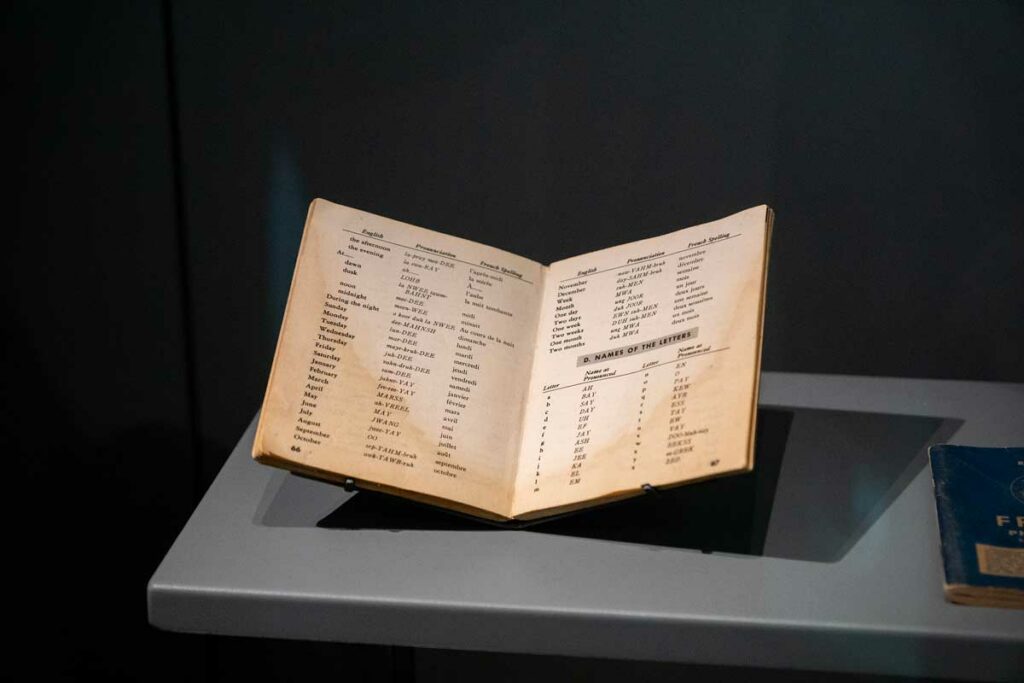 English Pronunciation French Spelling
the afternoon la-pray mee-DEE l'après-midi
the evening la swa-RAY la soirée
At— ah— À—
dawn LOHB l'aube
dusk la NWEE tawm-BAHNT la nuit tombante
noon mee-DEE midi
midnight meen-WEE minuit
During the night o koor duh la NWEE Au cours de la nuit
Sunday dee-MAHNSH dimanche
Monday lun-DEE lundi
Tuesday mar-DEE mardi
Wednesday mayr-kruh-DEE mercredi
Thursday juh-DEE jeudi
Friday vahn-druh-DEE vendredi
Saturday sam-DEE samedi
January janvier
February février
March MARSS mars
April ah-VREEL avril
May MAY mai
June JWANG juin
July juillet
August OO août
September sep-TAHM-bruh septembre
October awk-TAWB-ruh octobre
66
English Pronunciation French Spelling
November novembre
December day-SAHM-bruh décembre
Week suh-MEN semaine
Month MWA mois
One day ung JOOR un jour
Two days duh JOOR deux jours
One week EWN suh-MEN une semaine
Two weeks DUH suh-MEN deux semaines
One month ung MWA un mois
Two months duh MWA deux mois
D. NAMES OF THE LETTERS
Letter Name as Pronounced Letter Name as Pronounced
a AH n EN
b BAY o O
c SAY p PAY
d DAY q KEW
e UH r AYR
f EF s ESS
g JAY t TAY
h ASH u EW
i EE v VAY
j JEE w
k KA x EEKSS
l EL y
m EM z ZED
67